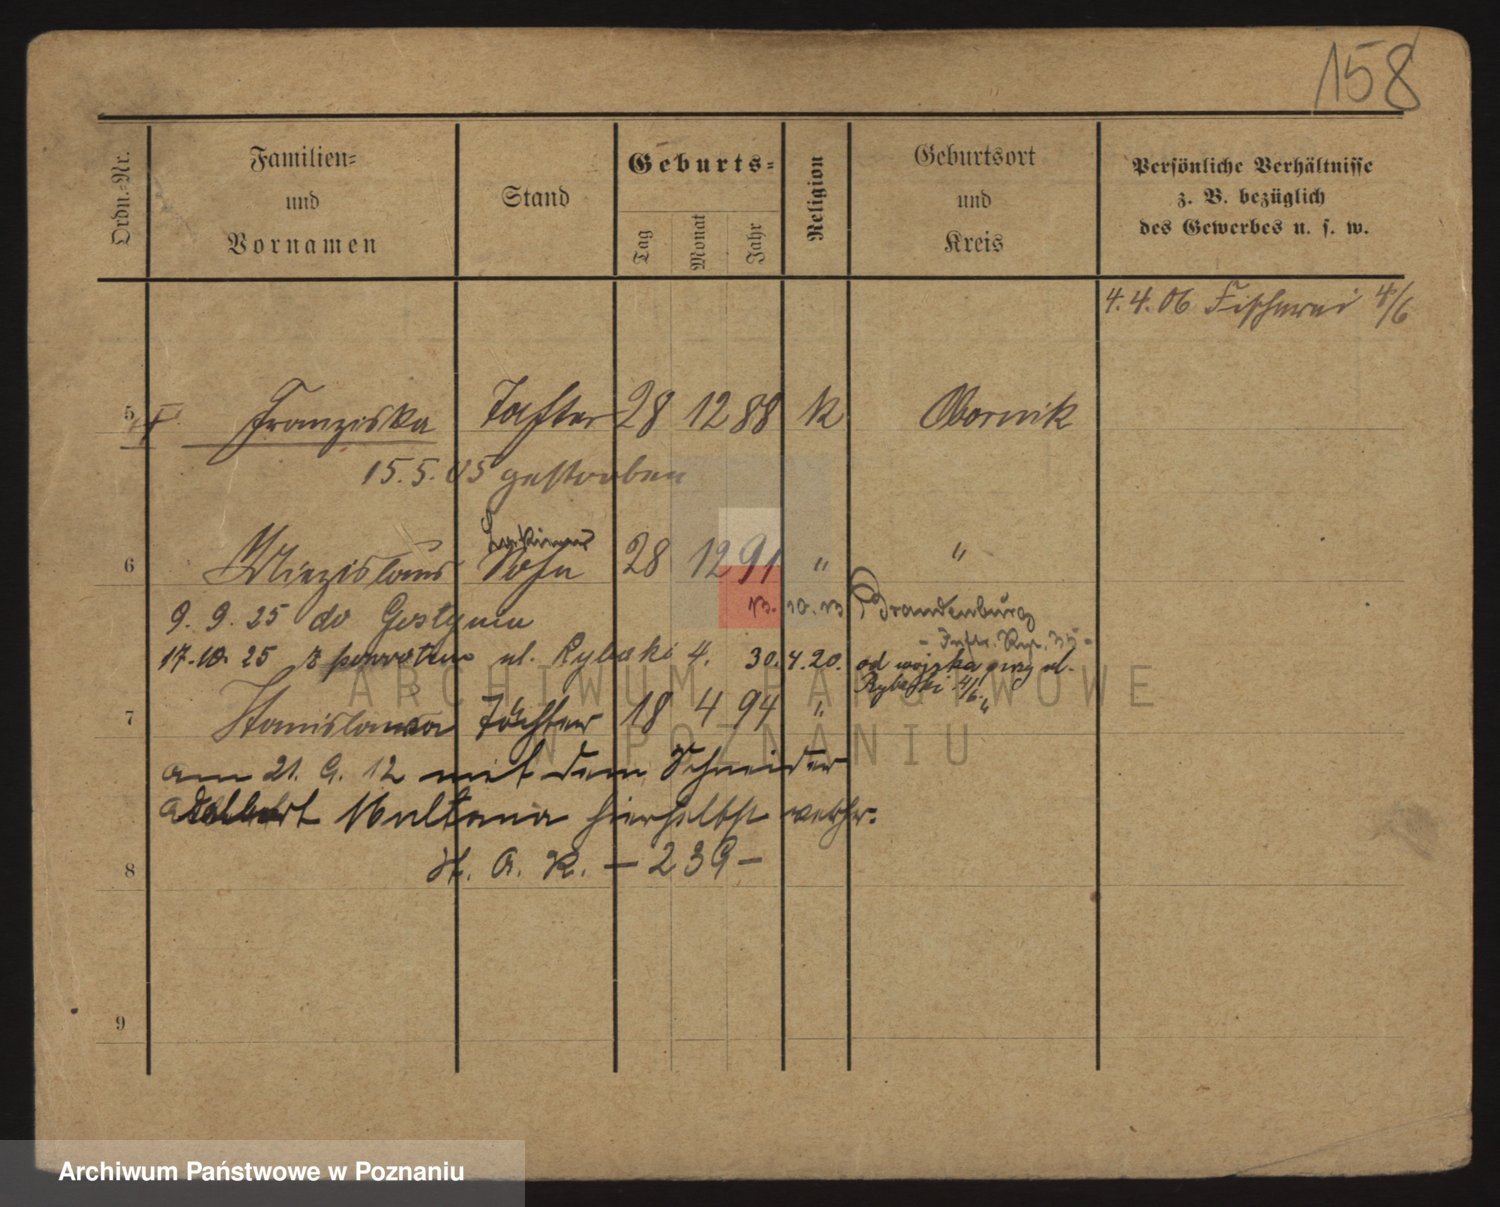 158
Ordn.-Nr.
Familien-
und
Vornamen
Stand
Geburts-
Tag
Monat
Jahr
Religion
Geburtsort
und
Kreis
Persönliche Verhältnisse
z. B. bezüglich
des Gewerbes u. s. w.
4. 4. 06 Fischerei 4/6
5 Franziska Tochter 28 12 88 k Obornik
15. 5. 05 gestorben
6 Miezislaus Sohn 28 12 91 " "
9. 9. 25 do Gostynia 13. 10. 13 Brandenburg
- Inftr. Rgt. 35 -
17. 10. 25 z powrotem ul. Rybaki 4. 30. 4. 20. od wojska przy ul.
Rybaki 4/6.
7 Stanislawa Tochter 18 4 94 " "
am 21. 9. 12 mit dem Schneider
Adalbert Multana hierselbst verh.
H. A. K. - 239 -
8
9
ARCHIWUM PAŃSTWOWE
W POZNANIU
Archiwum Państwowe w Poznaniu